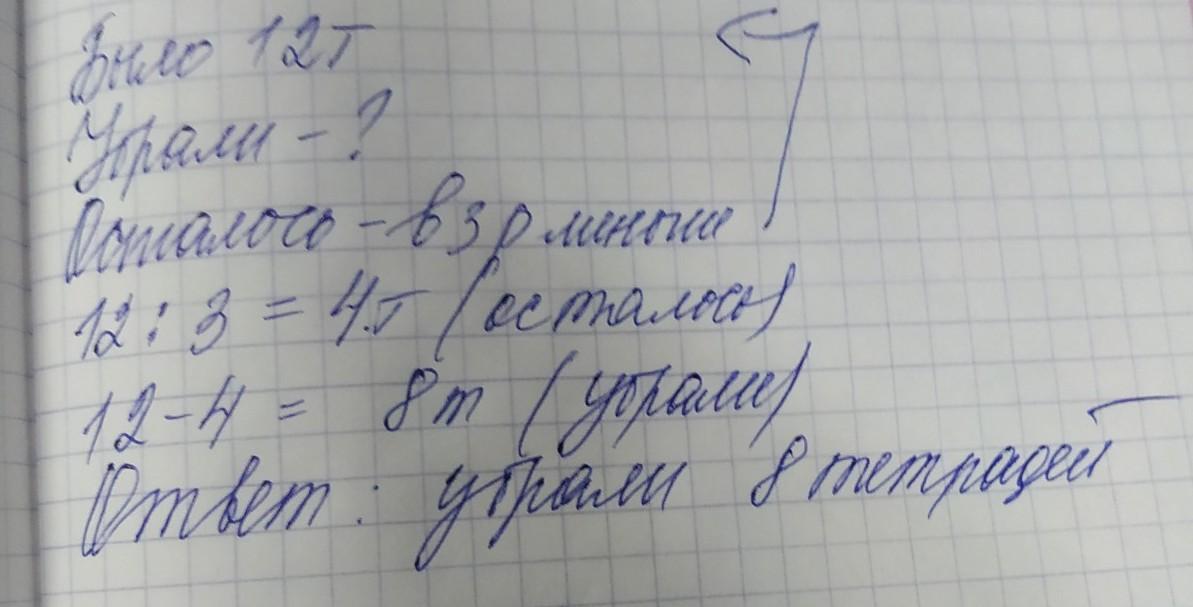 Было 12т
Убрали - ?
Осталось - в 3 р меньше
12 : 3 = 4т (осталось)
12 - 4 = 8т (убрали)
Ответ : убрали 8 тетрадей